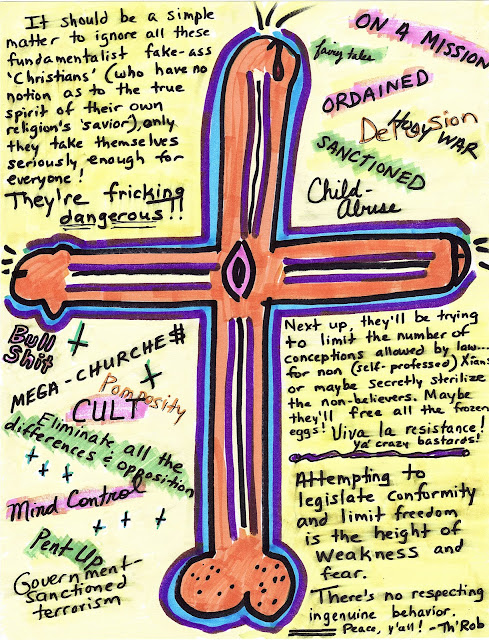 It should be a simple
matter to ignore all these
fundamentalist fake-ass
'Christians' (who have no
notion as to the true
spirit of their own
religion's 'savior'), only
they take themselves
seriously enough for
everyone!
They're fricking
dangerous!!
ON A MISSION
fairy tales
ORDAINED
Delusion
Holy WAR
SANCTIONED
Child-
Abuse
Bull
Shit
MEGA-CHURCHE$
Pomposity
CULT
Eliminate all the
differences & opposition
Mind Control
Pent Up
Government-
sanctioned
terrorism
Next up, they'll be trying
to limit the number of
conceptions allowed by law...
for non (self-professed) Xians
or maybe secretly sterilize
the non-believers. Maybe
they'll free all the frozen
eggs! Viva la resistance!
Ya' crazy bastards!
Attempting to
legislate conformity
and limit freedom
is the height of
weakness and
fear.
There's no respecting
ingenuine behavior.
Peace, y'all! -Th'Rob